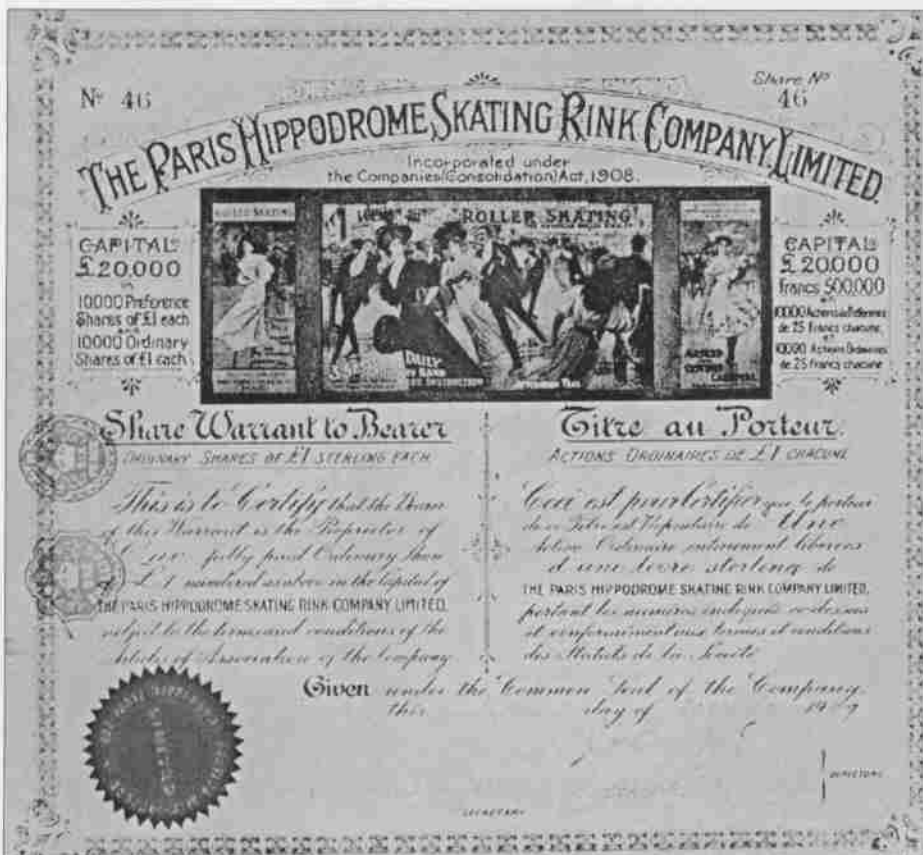 Nº 46
Share Nº
46
THE PARIS HIPPODROME SKATING RINK COMPANY, LIMITED.
Incorporated under
the Companies (Consolidation) Act, 1908.
CAPITAL
£20,000
in
10000 Preference
Shares of £1 each
and
10000 Ordinary
Shares of £1 each.
ROLLER SKATING
ROLLER SKATING
DAILY
BAND
CAPITAL
£20000
francs 500,000
10000 Actions de Préférence
de 25 francs chacune
et
10000 Actions Ordinaires
de 25 francs chacune
Share Warrant to Bearer
ORDINARY SHARES OF £1 STERLING EACH
This is to Certify that the Bearer
of this Warrant is the Proprietor of
one fully paid Ordinary share
of £1 numbered as above in the Capital of
THE PARIS HIPPODROME SKATING RINK COMPANY LIMITED,
subject to the terms and conditions of the
Articles of Association of the Company
Titre au Porteur.
ACTIONS ORDINAIRES DE £1 CHACUNE
Ceci est pour Certifier que le porteur
de ce Titre est Propriétaire de Une
Action Ordinaire entièrement libérée
d'une livre sterling de
THE PARIS HIPPODROME SKATING RINK COMPANY LIMITED,
portant les numéros indiqués ci-dessus
et conformément aux termes et conditions
des Statuts de la Société
Given under the Common Seal of the Company
this day of 19 9
DIRECTORS
SECRETARY